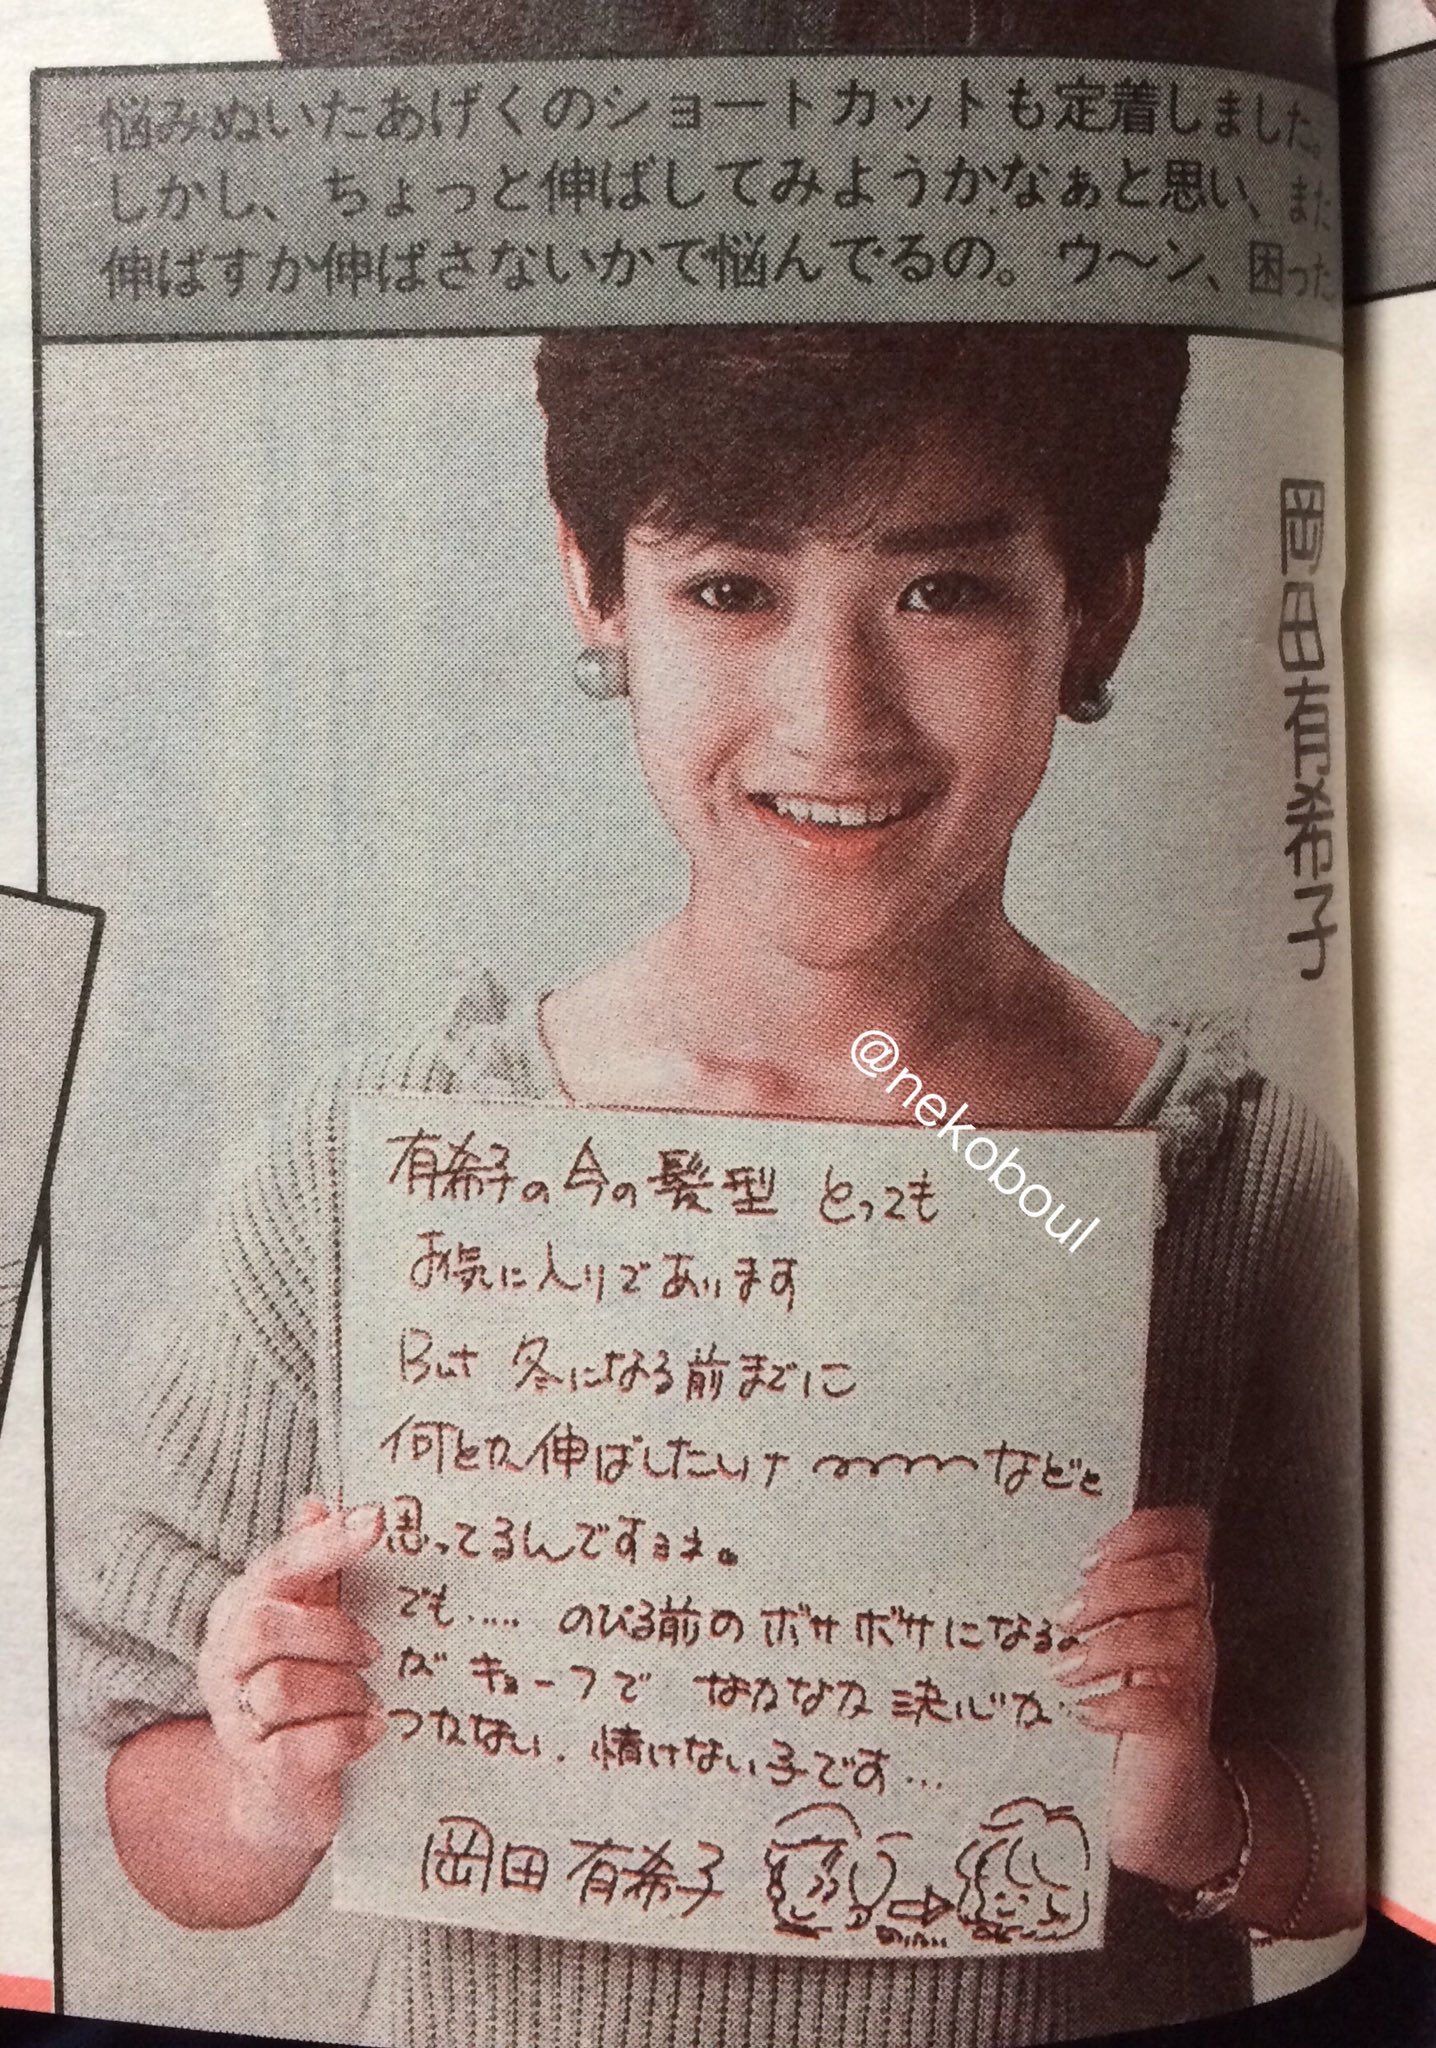 悩みぬいたあげくのショートカットも定着しました。
しかし、ちょっと伸ばしてみようかなぁと思い、また
伸ばすか伸ばさないかで悩んでるの。ウ〜ン、困った
岡田有希子
@nekoboul
有希子の今の髪型 とっても
お気に入りであります
But 冬になる前までに
何とか伸ばしたいナ 〜〜〜〜などと
思ってるんですョネ。
でも..... のびる前の ボサボサになるの
が キョーフで なかなか 決心が
つかない. 情けない子です...
岡田 有希子